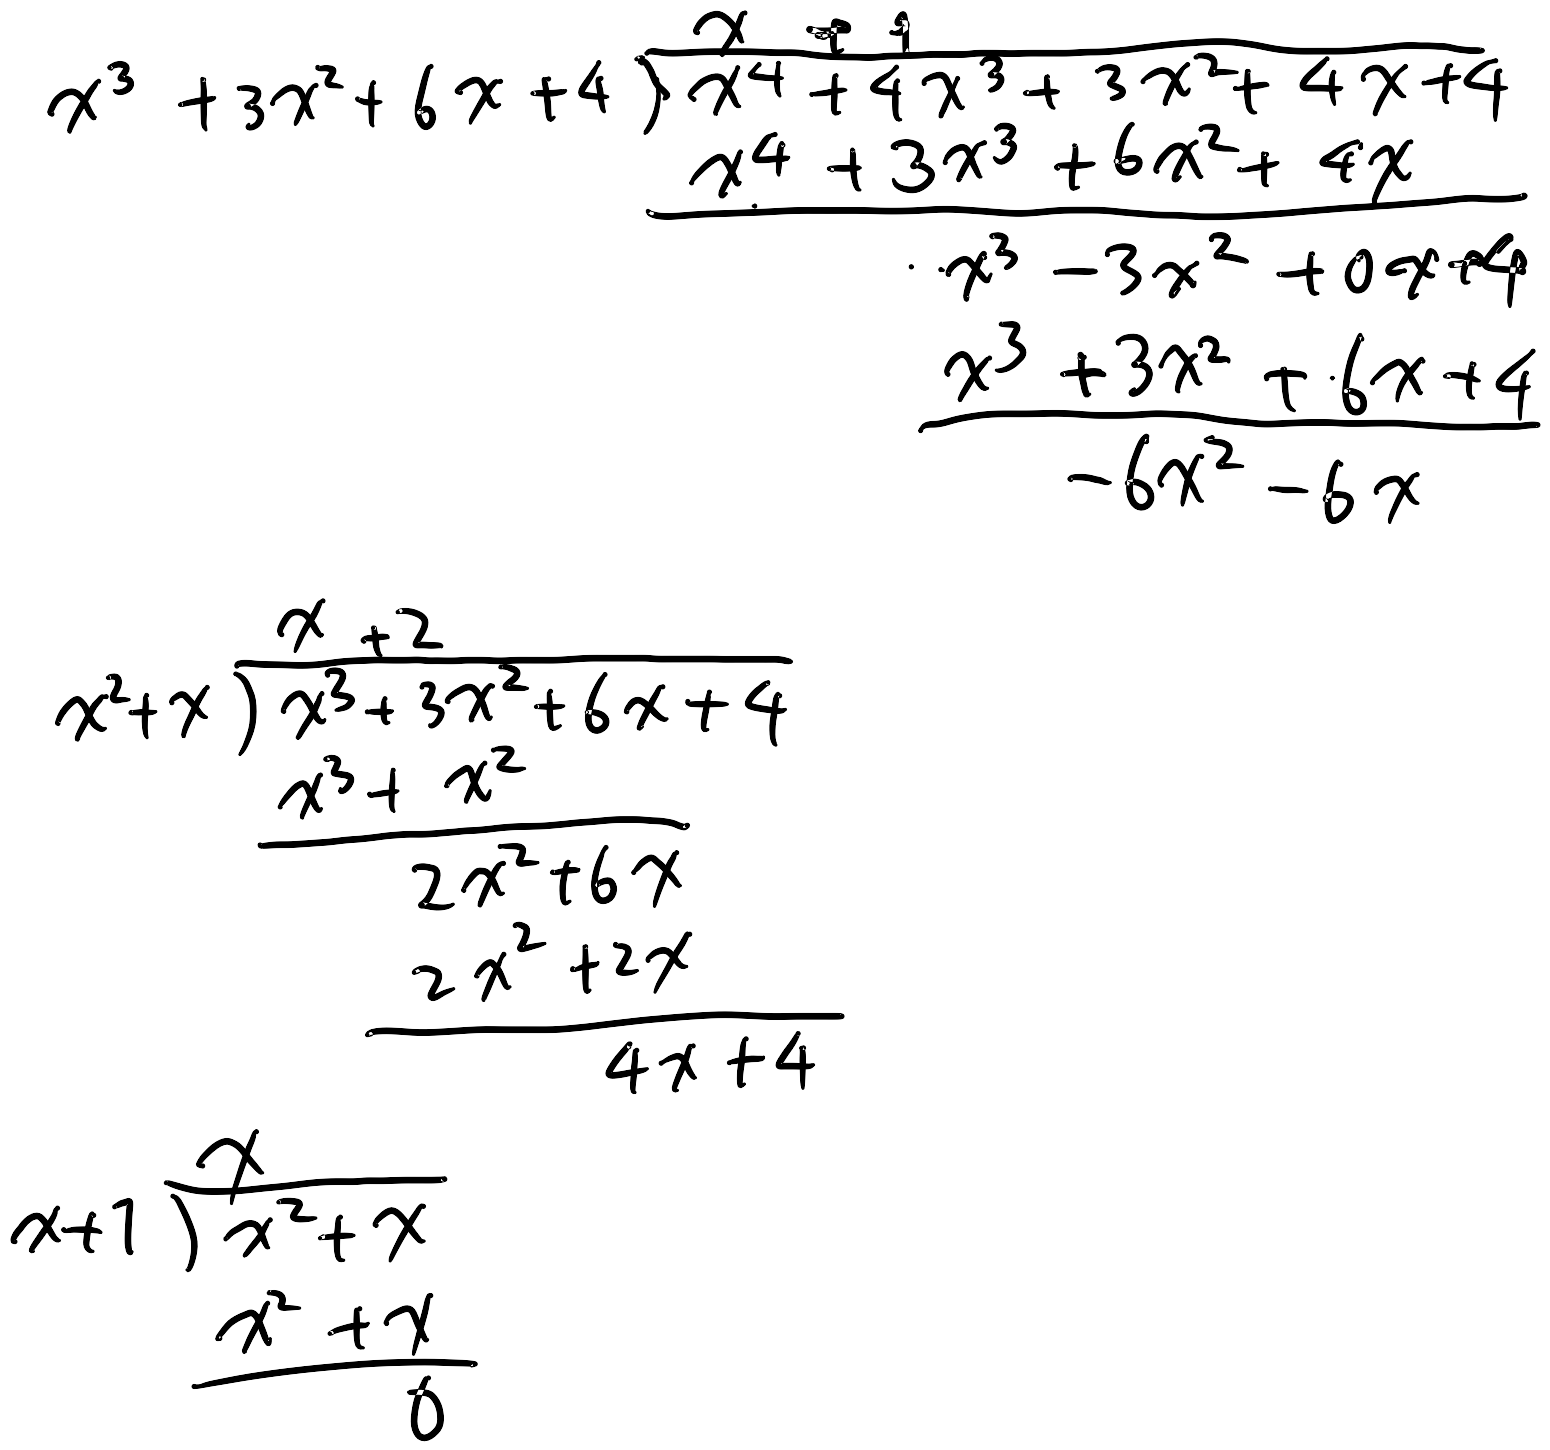 x + 1
x³ + 3x² + 6x + 4 ) x⁴ + 4x³ + 3x² + 4x + 4
x⁴ + 3x³ + 6x² + 4x
x³ - 3x² + 0x + 4
x³ + 3x² + 6x + 4
-6x² - 6x
x + 2
x² + x ) x³ + 3x² + 6x + 4
x³ + x²
2x² + 6x
2x² + 2x
4x + 4
x
x + 1 ) x² + x
x² + x
0